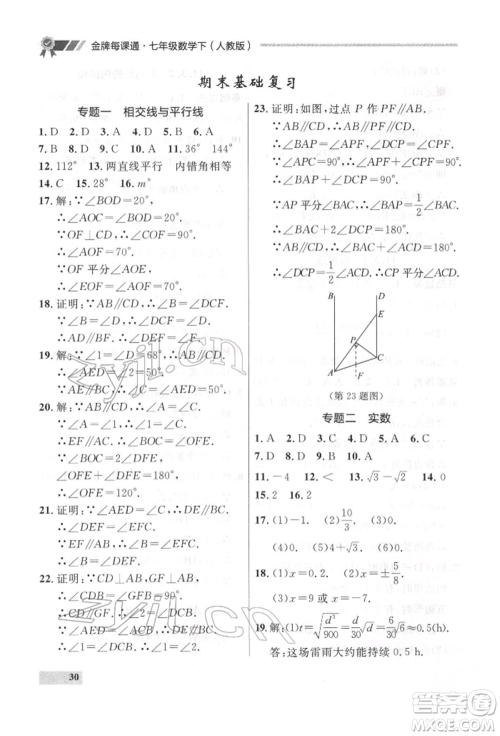 金牌每课通·七年级数学下（人教版）
期末基础复习
专题一　相交线与平行线
1. D　2. D　3. A　4. D　5. A　6. D
7. B　8. B　9. B　10. A　11. 36°　144°
12. 112°　13. 两直线平行　内错角相等
14. C　15. 28°　16. m°
17. 解：∵∠BOD=20°，
∴∠AOC=∠BOD=20°.
∵OF⊥CD，∴∠COF=90°.
∴∠AOF=70°.
∵OF平分∠AOE，
∴∠EOF=∠AOF=70°.
18. 证明：∵AB∥CD，∴∠B=∠C.
∵∠B=∠D，∴∠C=∠D.
19. 解：∵∠1=∠D=68°，∴AB∥CD.
∴∠AED=∠2=90°.
∵∠BED=180°-∠AED=90°.
20. 解：∵AB∥CD，
∴∠BOE=∠D=50°.
∵EF∥AC，∴∠OFE=∠A.
∵∠BOE=∠A+∠OEF，
∠OFE+∠OEF=180°，
∴∠OFE=130°，
∴∠DEF=120°.
21. 证明：∵AB∥CD，
∴∠AED=∠D.
∵∠AED=∠EFC，
∴∠D=∠EFC，∴DE∥AF，
∴∠DEF=∠EFC.
∴∠AED=∠DEF.
22. 证明：∵CD⊥AB，GF⊥AB，
∴∠CDB=∠GFB=90°.
∴CD∥GF，∴∠CGF=∠DCB.
∵∠AED=∠ACB，∴DE∥BC，
∴∠EDC=∠DCB，
∴∠EDC=∠CGF.
23. 证明：如图，过点P作PF∥AB，
∴∠BAP=∠APF，∠DCP=∠CPF.
∵∠APC=90°，
∴∠BAP+∠DCP=90°.
∵AP平分∠BAC，∴∠BAP=1/2∠BAC，
∵AB∥CD，
∴∠BAC+∠DCA=180°.
∴∠DCP=1/2∠DCA，∴CP平分∠DCA.
B　D
E
P
C
A　F
（第23题图）
专题二　实数
1. A　2. D　3. C　4. D　5. A　6. C
7. D　8. B　9. B　10. A
11. -4　12. <　13. √3-√2　14. 0
15. 2　16. 2
17. (1)-1.　(2)10/3.　(3)0.
(4)0.　(5)-4+√3.　(6)0.
18. (1)x=0.2.　(2)x=±5/8.
(3)x=-1.
19. 解：(1)t=√(d³/900)=√(6³/900)≈0.5(h).
答：这场雷雨大约能持续0.5 h.
30